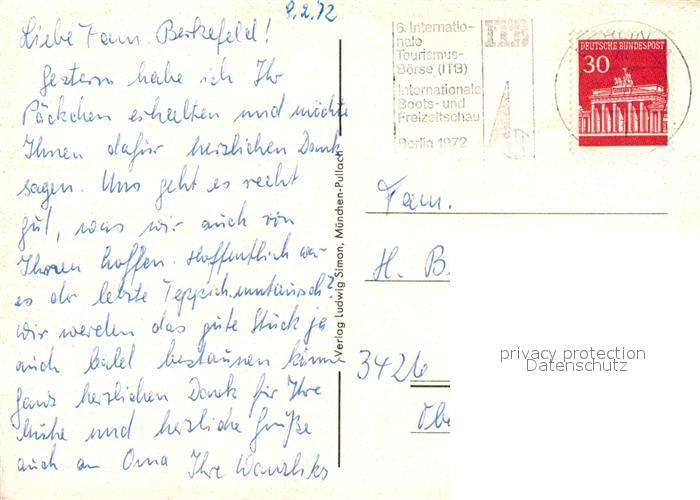 8.2.72
Liebe Fam. Berkefeld!
Gestern habe ich Ihr
Päckchen erhalten und möchte
Ihnen dafür herzlichen Dank
sagen. Uns geht es recht
gut, was wir auch von
Ihnen hoffen. Hoffentlich war
es der letzte Teppichumtausch?
Wir werden das gute Stück ja
auch bald bestaunen können
Ganz herzlichen Dank für Ihre
Mühe und herzliche Grüße
auch an Oma Ihre
Verlag Ludwig Simon, München-Pullach
6. Internatio-
nale
Tourismus-
Börse (ITB)
Internationale
Boots- und
Freizeitschau
Berlin 1972
ITB
DEUTSCHE BUNDESPOST
30
Fam.
H. B.
3426
Obe
privacy protection
Datenschutz